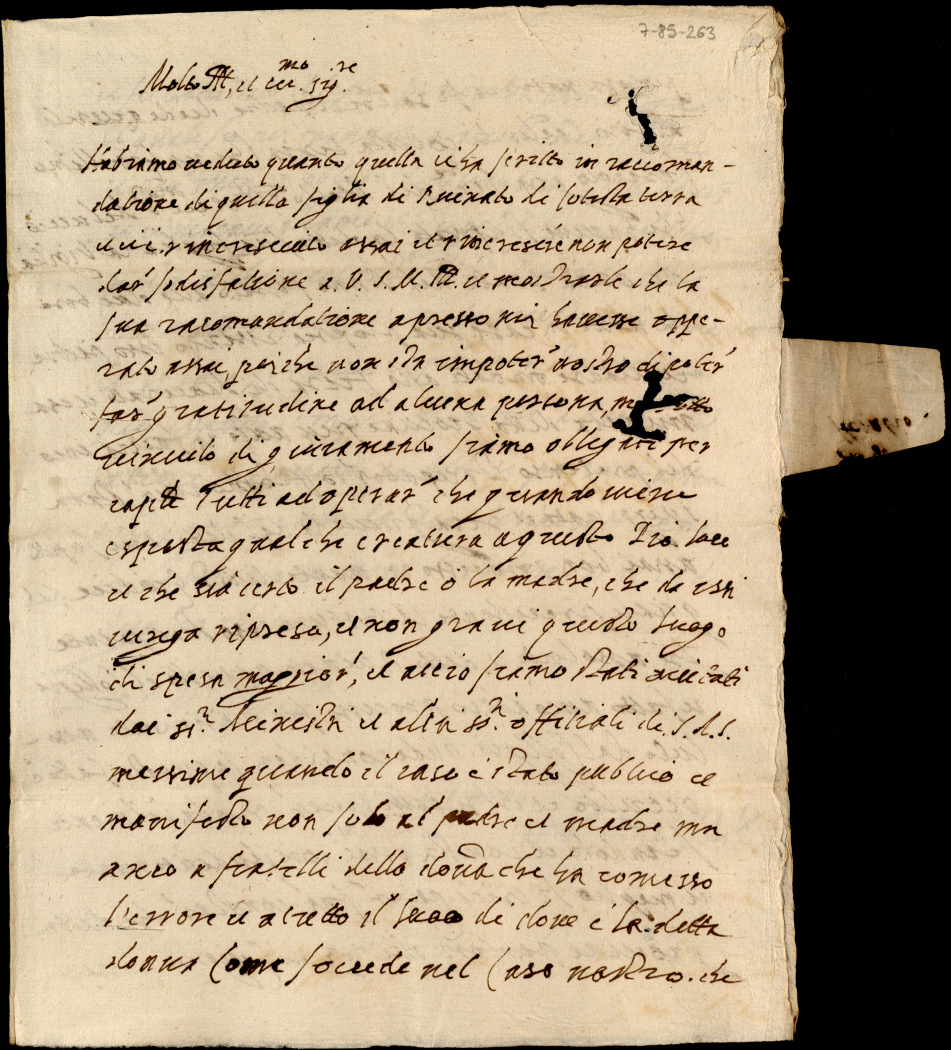 7-85-263
Molto Ill, et ecc.mo sig.re
Habiamo veduto quanto quella ci ha scritto in raccoman-
datione di quella figlia di di cotesta terra
et ci è rincresciuto assai et rincresce non potere
dar' sodisfatione a V. S. M. Ill. et mostrarle che la
sua racomandatione apresso noi havesse oppe-
rato assai, perche non sta impoter' nostro di poter'
far' gratitudine ad alcuna persona,
vinculo di giuramento siamo obligati per
capit Tutti ad operar' che quando viene
esposta qual che creatura a questo Pio loco
et che sia certo il padre ò la madre, che da essi
venga ripresa, et non gravi questo luogo
di spesa maggior', et a ciò siamo stati
dai ss.ri Ministri et altri ss.ri offitiali di S. A. S.
messime quando il caso è stato publico et
manifesto non solo al padre et madre ma
anco a fratelli della dona che ha comesso
l'errore et a tutto il loco di dove è la detta
donna Come socede nel Caso nostro. che